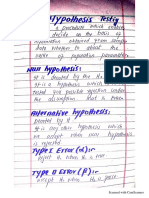 Hypothesis Testing
a procedure which enables
to decide on the basis of
information obtained from sample
data whether to
value of population parameter.
Null hypothesis:
It is denoted by the H₀. It is
tested for possible rejection under
the assumption that is true.
Alternative hypothesis:
denoted by H₁
It is any other hypothesis which
we accept when null hypothesis
is rejected
Type I Error (α):
reject H₀ when H₀ is true
Type II Error (β):
accept H₀ when H₀ is false
Scanned with CamScanner